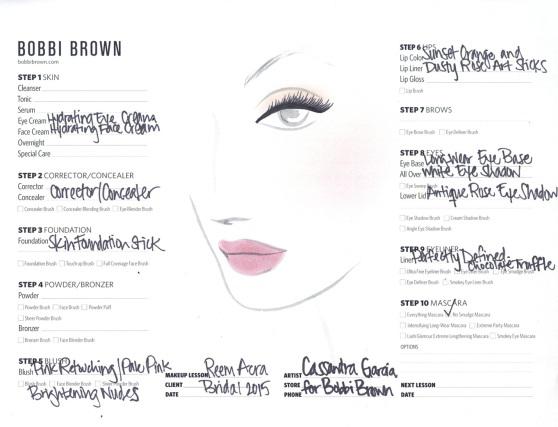 BOBBI BROWN
bobbibrown.com
STEP 1 SKIN
Cleanser
Tonic
Serum
Eye Cream Hydrating Eye Cream
Face Cream Hydrating Face Cream
Overnight
Special Care
STEP 2 CORRECTOR/CONCEALER
Corrector
Concealer Corrector/Concealer
Concealer Brush Concealer Blending Brush Eye Blender Brush
STEP 3 FOUNDATION
Foundation Skin Foundation Stick
Foundation Brush Touch up Brush Full Coverage Face Brush
STEP 4 POWDER/BRONZER
Powder
Powder Brush Face Brush Powder Puff
Sheer Powder Brush
Bronzer
Bronzer Brush Face Blender Brush
STEP 5 BLUSH
Blush Pink Retouching/Pale Pink
Blush Brush Face Blender Brush
Brightening Nudes
MAKEUP LESSON Reem Acra
CLIENT Bridal 2015
DATE
ARTIST Cassandra Garcia
STORE for Bobbi Brown
PHONE
STEP 6 LIPS
Lip Color Sunset Orange and
Lip Liner Dusty Rose Art Sticks
Lip Gloss
Lip Brush
STEP 7 BROWS
Eye Brow Brush Eye Definer Brush
STEP 8 EYES
Eye Base Longwear Eye Base
All Over White Eye Shadow
Lower Lid Antique Rose Eye Shadow
Eye Shadow Brush Cream Shadow Brush
Angle Eye Shadow Brush
STEP 9 EYELINER
Liner Perfectly Defined
Chocolate Truffle
Ultra Fine Eyeliner Brush
Eye Definer Brush Smokey Eye Liner Brush
STEP 10 MASCARA
Everything Mascara No Smudge Mascara
Intensifying Long-Wear Mascara Extreme Party Mascara
Lash Glamour Extreme Lengthening Mascara Smokey Eye Mascara
OPTIONS
NEXT LESSON
DATE